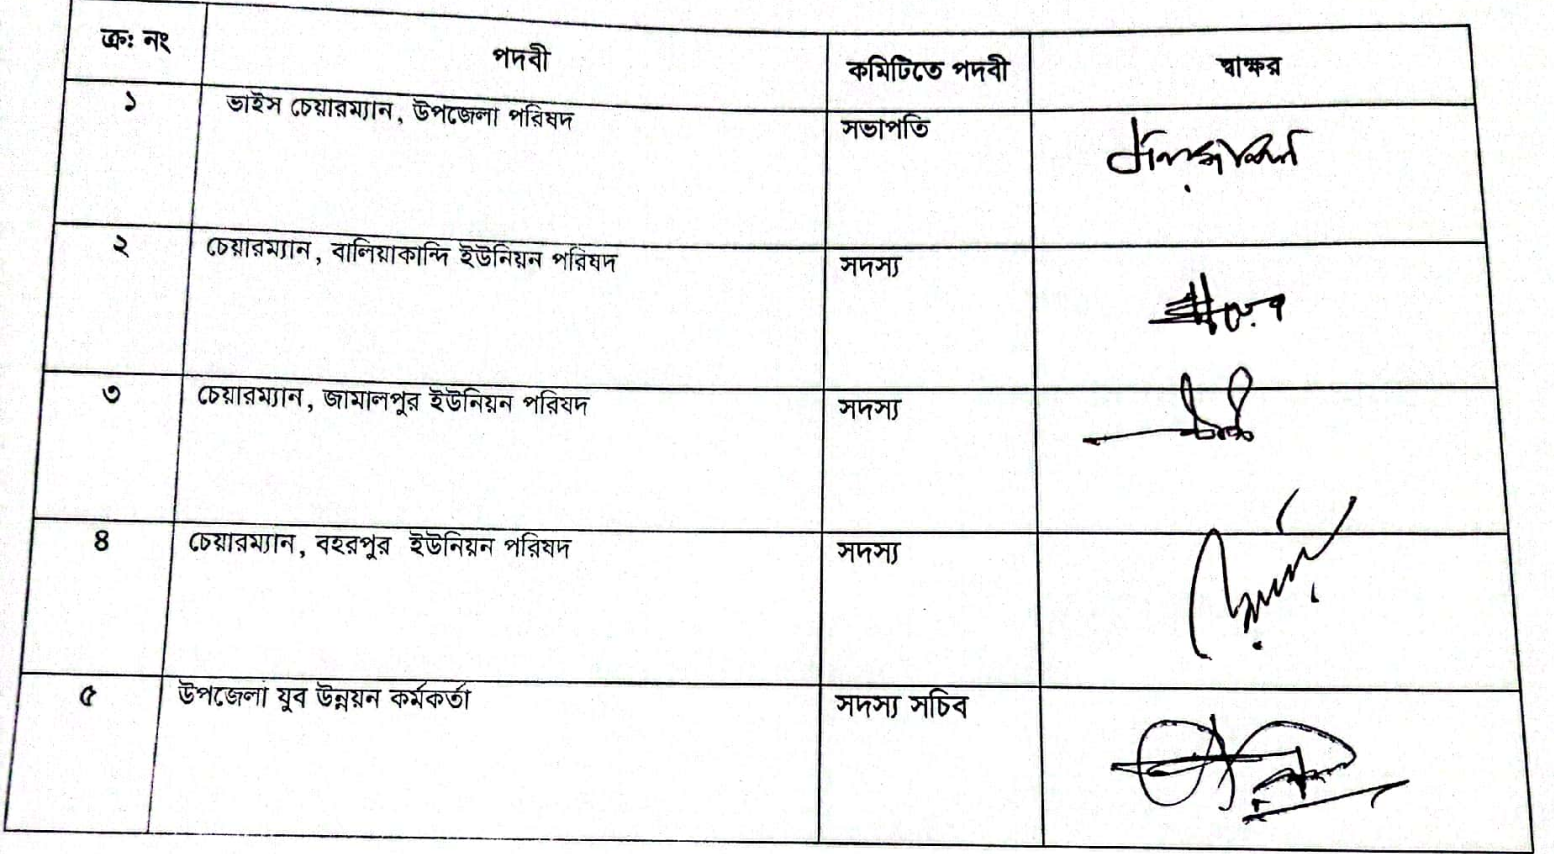 ক্র: নং পদবী কমিটিতে পদবী স্বাক্ষর
১ ভাইস চেয়ারম্যান, উপজেলা পরিষদ সভাপতি
২ চেয়ারম্যান, বালিয়াকান্দি ইউনিয়ন পরিষদ সদস্য
৩ চেয়ারম্যান, জামালপুর ইউনিয়ন পরিষদ সদস্য
৪ চেয়ারম্যান, বহরপুর ইউনিয়ন পরিষদ সদস্য
৫ উপজেলা যুব উন্নয়ন কর্মকর্তা সদস্য সচিব